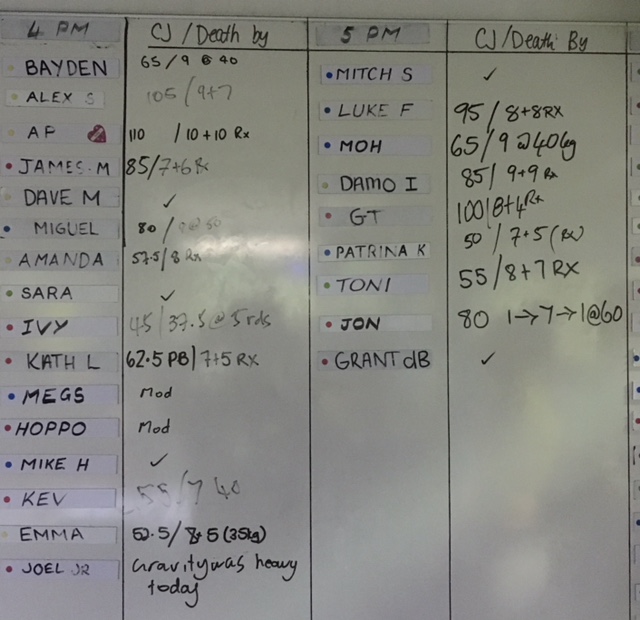 4 PM CJ/Death by
BAYDEN 65/9 @ 40
ALEX S 105/9+7
AP 110 /10+10 Rx
JAMES.M 85/7+6 Rx
DAVE M ✓
MIGUEL 80/
AMANDA 57.5/8 Rx
SARA ✓
IVY 45/37.5@5 rds
KATH L 62.5 PB/7+5 RX
MEGS Mod
HOPPO Mod
MIKE H ✓
KEV 55/7 40
EMMA 52.5/8+5 (35kg)
JOEL JR Gravity was heavy
today
5 PM CJ/Death By
MITCH S ✓
LUKE F 95/8+8RX
MOH 65/9@40kg
DAMO I 85/9+9 Rx
GT 100/8+4Rx
PATRINA K 50/7+5(RX)
TONI 55/8+7 RX
JON 80 1→7→1@60
GRANT dB ✓